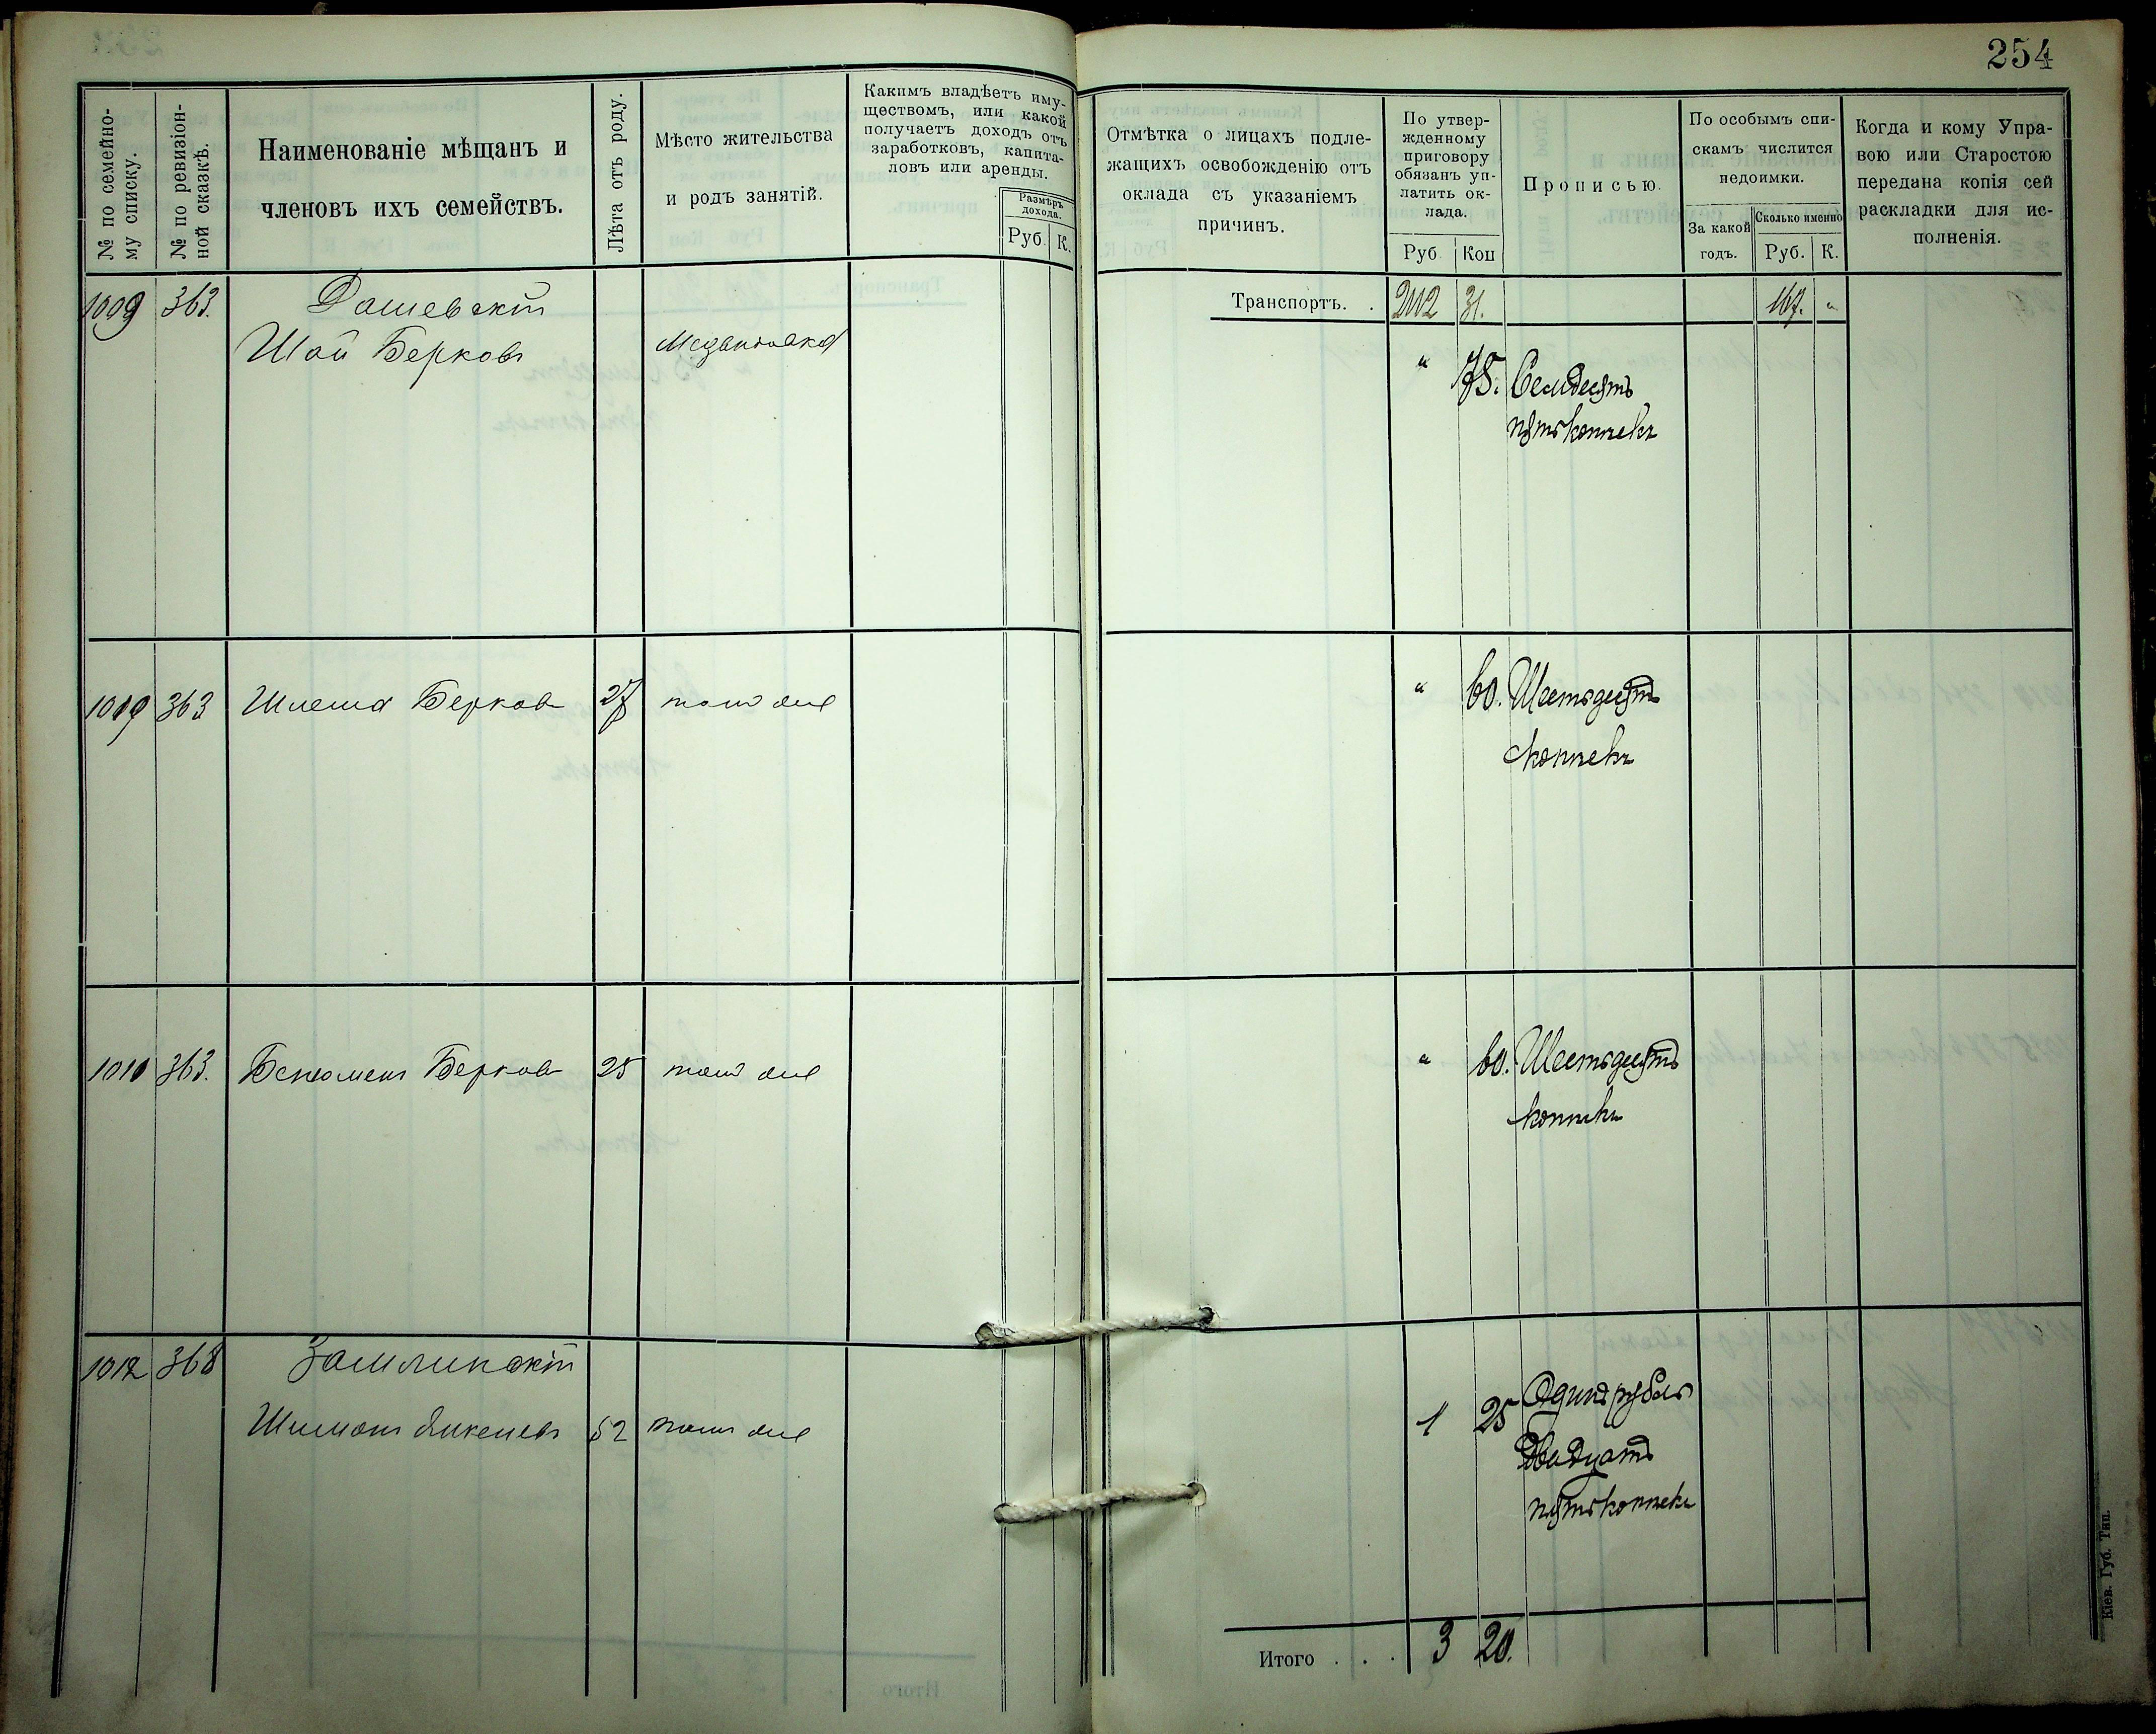 254
№ по семейно-
му списку.
№ по ревизіон-
ной сказкѣ.
Наименованіе мѣщанъ и
членовъ ихъ семействъ.
Лѣта отъ роду.
Мѣсто жительства
и родъ занятій.
Какимъ владѣетъ иму-
ществомъ, или какой
получаетъ доходъ отъ
заработковъ, капита-
ловъ или аренды.
Размѣръ
дохода.
Руб. К.
Отмѣтка о лицахъ подле-
жащихъ освобожденію отъ
оклада съ указаніемъ
причинъ.
По утвер-
жденному
приговору
обязанъ уп-
латить ок-
лада.
Руб Коп
Прописью.
По особымъ спи-
скамъ числится
недоимки.
За какой
годъ.
Сколько именно
Руб. К.
Когда и кому Упра-
вою или Старостою
передана копія сей
раскладки для ис-
полненія.
Транспортъ. . 2112 31. 167. "
1009 363. Дашевскій
Шай Берковъ
" 75. Семдесятъ
пять копѣекъ
363 Шлема Берковъ 27 тоже
" 60. Шестьдесятъ
копѣекъ
1010 363. Берковъ 25 тоже
" 60. Шестьдесятъ
копѣекъ
1012 368
Шимонъ 52 тоже
1 25 Одинъ рубль
двадцать
пять копѣекъ
Итого . . . 3 20.
Кіев. Губ. Тип.